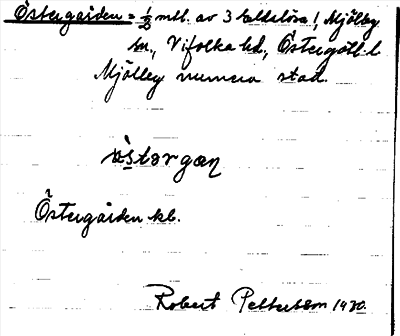 Östergården = 1/2 mtl. av 3 Kaldslösa!, Mjölby
sn., Vifolka hd, Östergötl. l
Mjölby numera stad.
Östergården kb.
Robert Pettersson 1930.